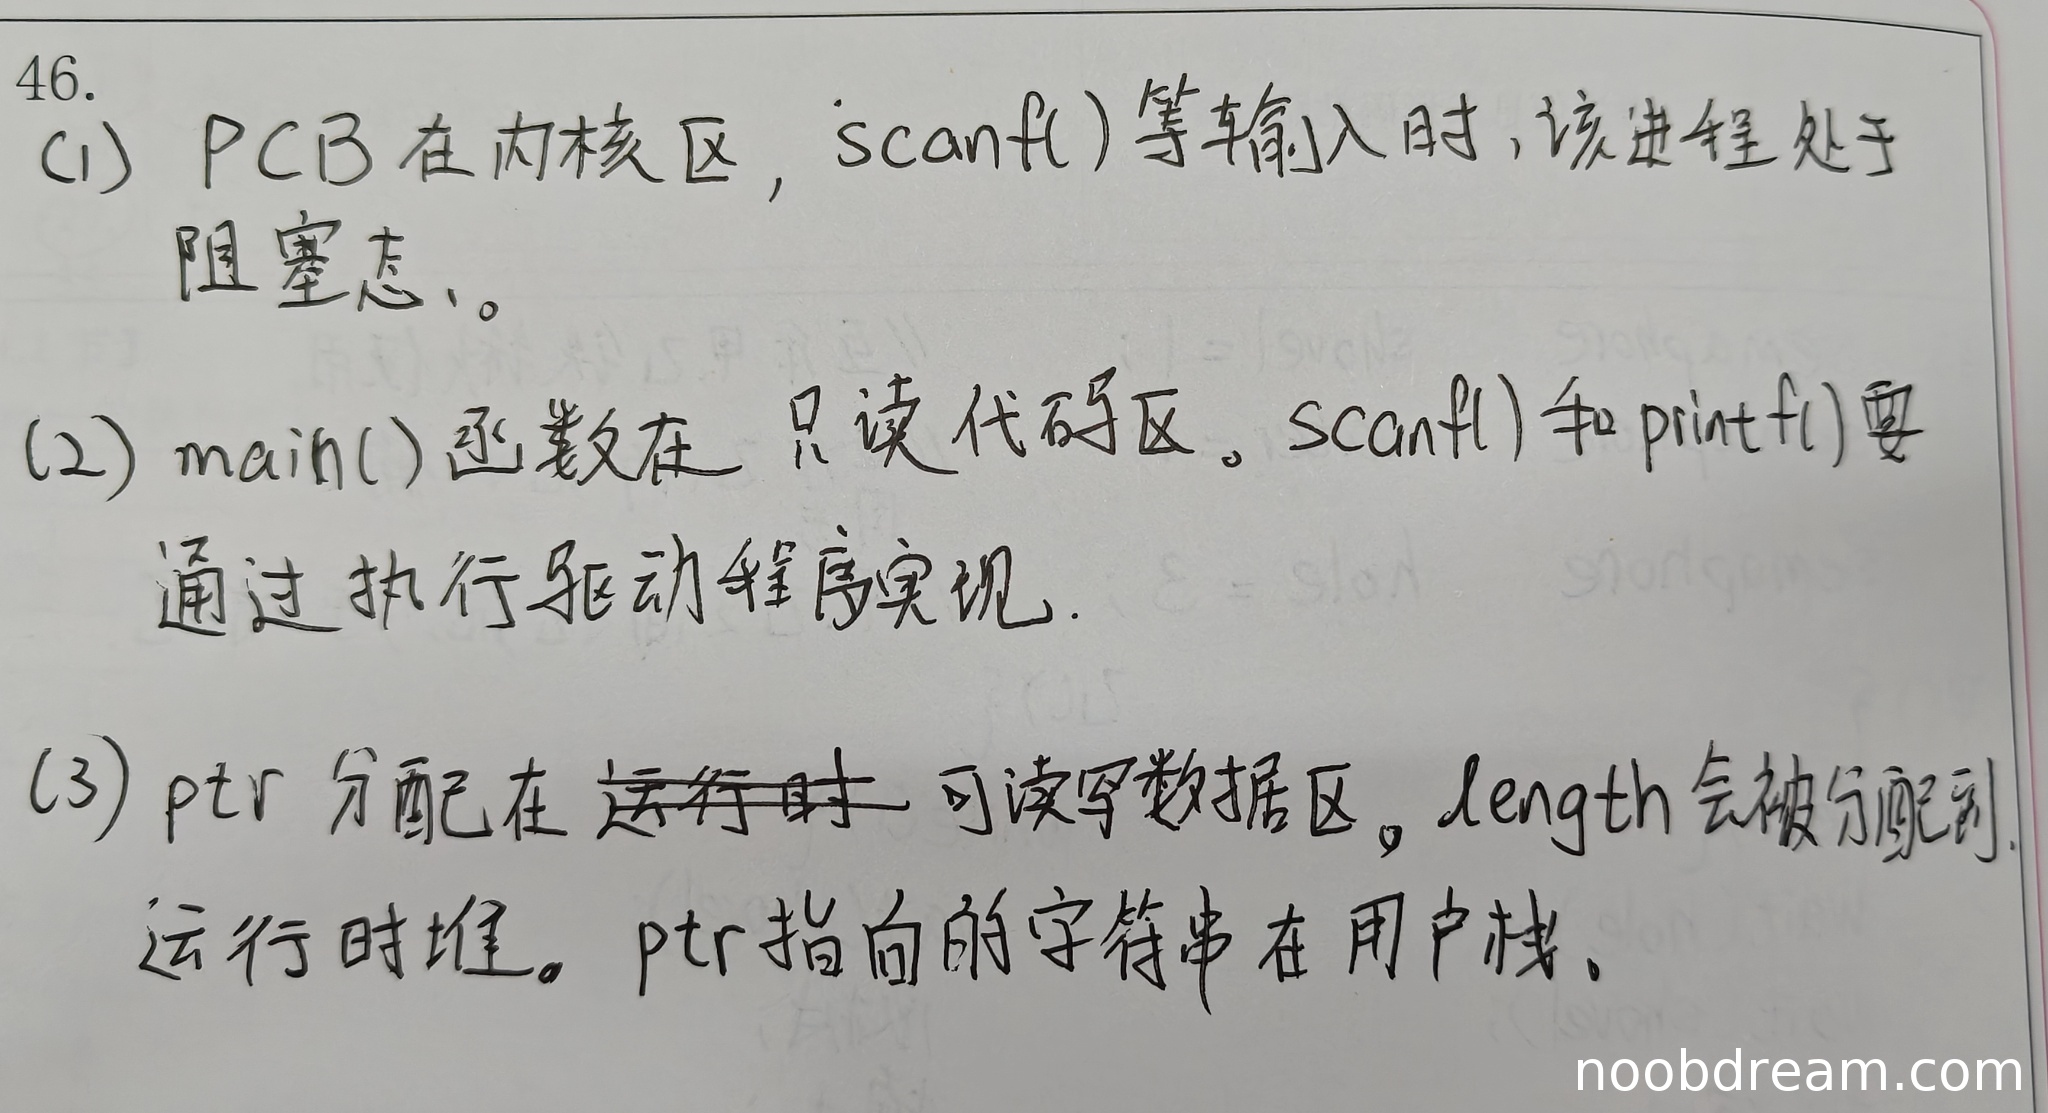 46.
(1) PCB在内核区, scanf()等输入时,该进程处于
阻塞态、。
(2) main()函数在 只读代码区。scanf()和printf()要
通过执行驱动程序实现.
(3) ptr 分配在 运行时 可读写数据区。length会被分配到
运行时堆。ptr指向的字符串在用户栈。
noobdream.com